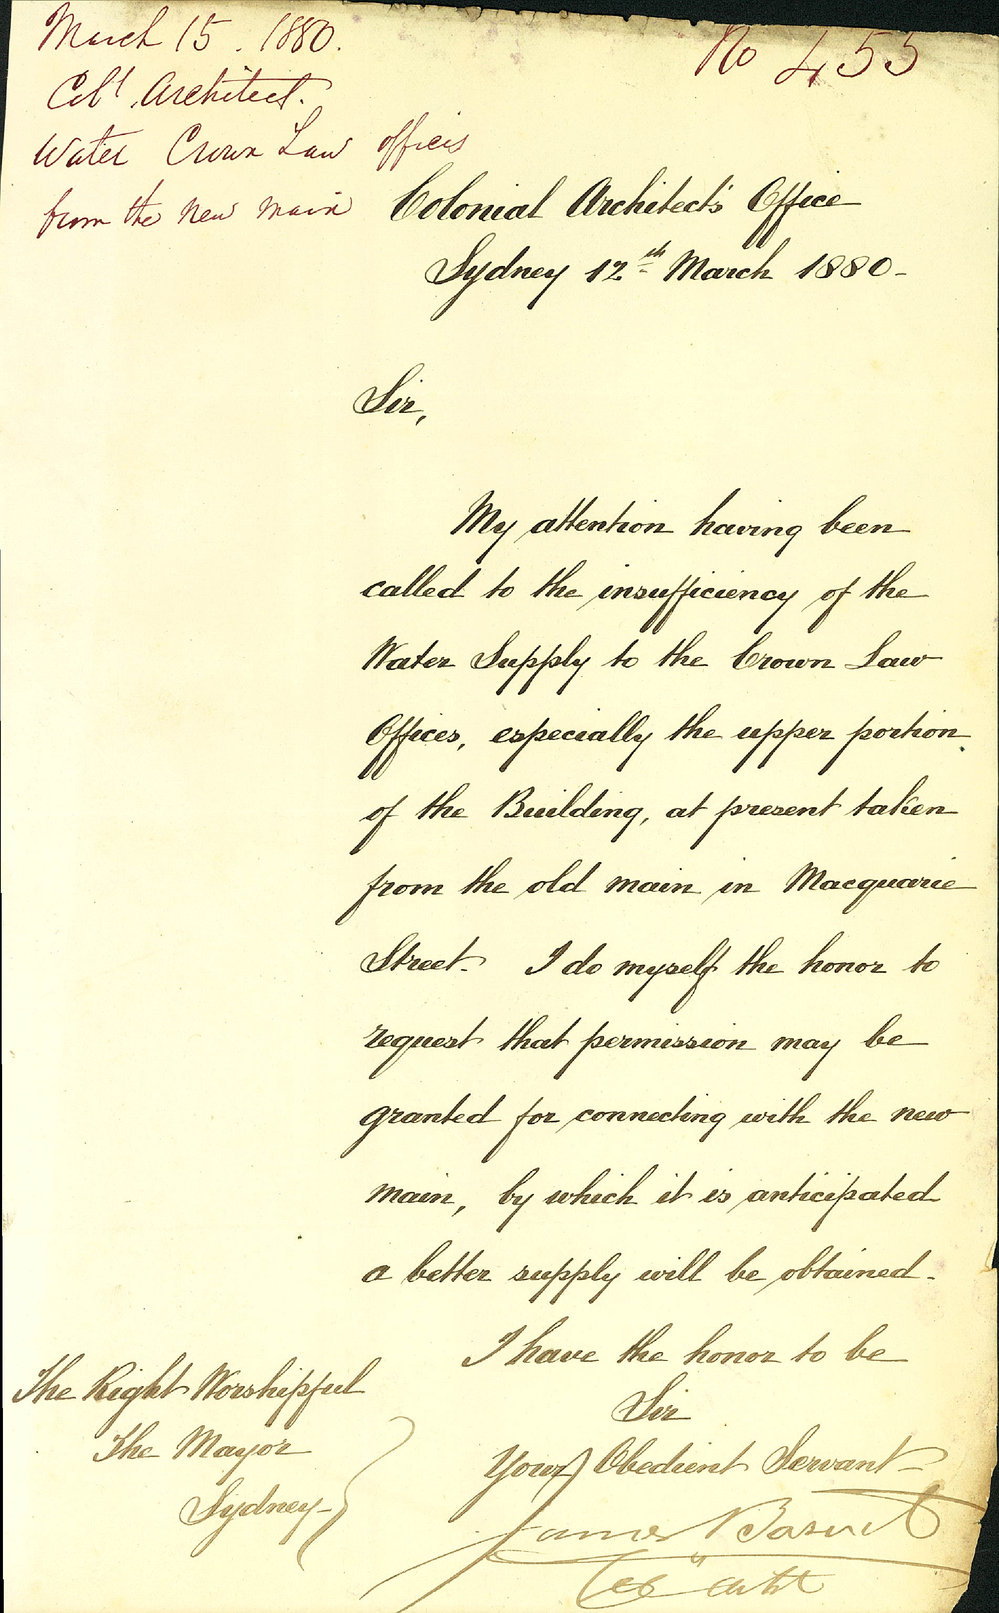 March 15. 1880.
No 455
Coll Architect.
Water Crown Law offices
from the new main
Colonial Architect's Office
Sydney 12th March 1880-
Sir,
My attention having been
called to the insufficiency of the
Water Supply to the Crown Law
Offices, especially the upper portion
of the Building, at present taken
from the old main in Macquarie
Street. I do myself the honor to
request that permission may be
granted for connecting with the new
main, by which it is anticipated
a better supply will be obtained.
I have the honor to be
Sir
Your Obedient Servant
James Barnet
Col Archt
The Right Worshipful
The Mayor
Sydney